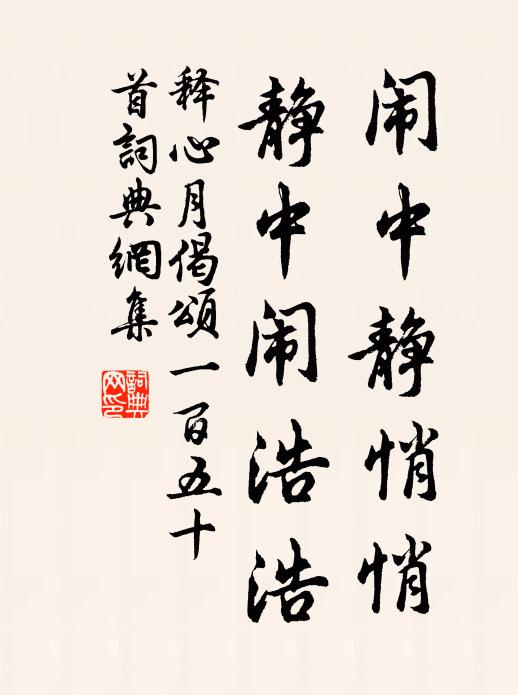 闹中静悄悄
静中闹浩浩
释心月偈頌一百五十
首詞典網集
詞典网印